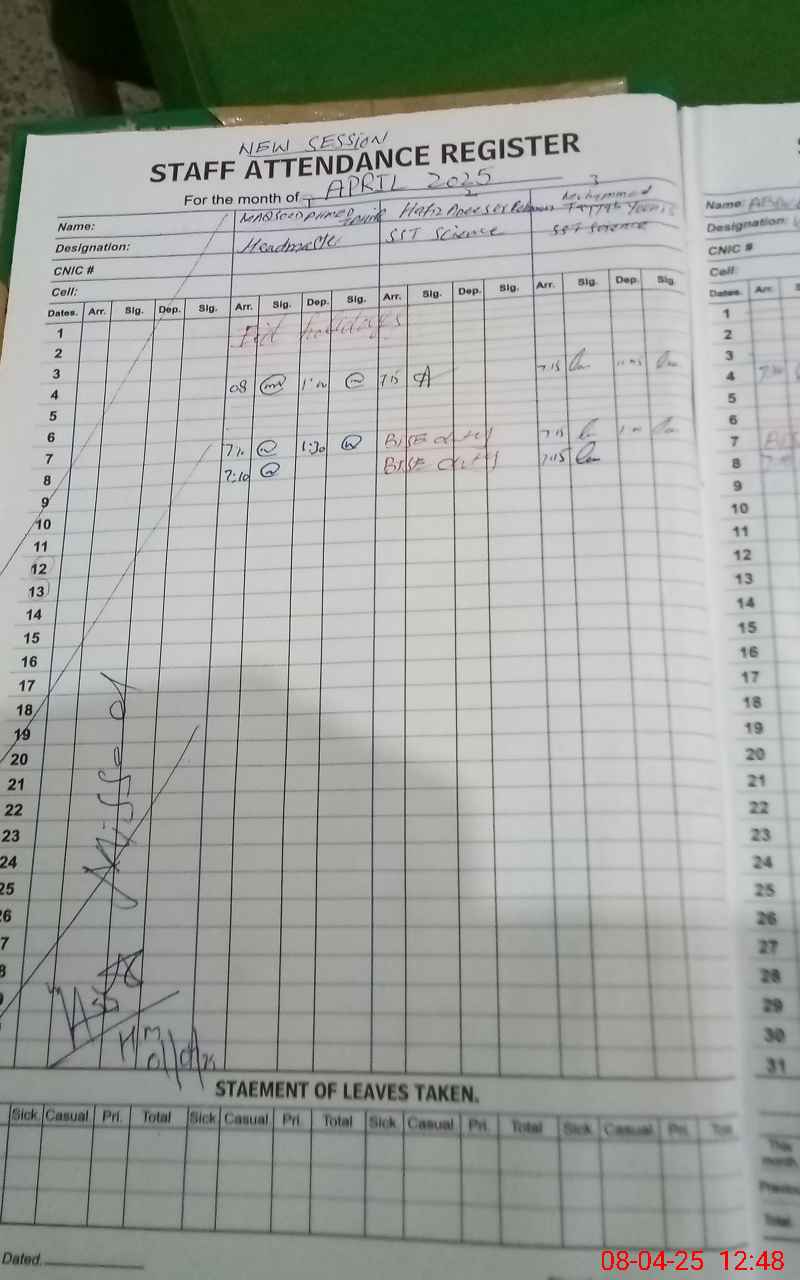 NEW SESSION
STAFF ATTENDANCE REGISTER
For the month of APRIL 2025
1 2 3
Name: Hafiz Muhammad
Designation: Headmaster SST Science SST Science
CNIC #
Cell:
Dates. Arr. Sig. Dep. Sig. Arr. Sig. Dep. Sig. Arr. Sig. Dep. Sig. Arr. Sig. Dep. Sig.
1 Eid holidays
2
3
4 08 7:15 7:15
5
6
7 1:30 BISE duty 7:15
8 7:10 BISE duty 7:15
9
10
11
12
13
14
15
16
17
18
19
20
21
22
23
24
25
26
7
8
Missed
HM
01/04/25
STAEMENT OF LEAVES TAKEN.
Sick Casual Pri. Total Sick Casual Pri. Total Sick Casual Pri. Total Sick Casual Pri.
Dated.
Name:
Designation:
CNIC #
Cell:
Dates. Arr.
1
2
3
4
5
6
7
8
9
10
11
12
13
14
15
16
17
18
19
20
21
22
23
24
25
26
27
28
29
30
31
This
month
Total
08-04-25 12:48